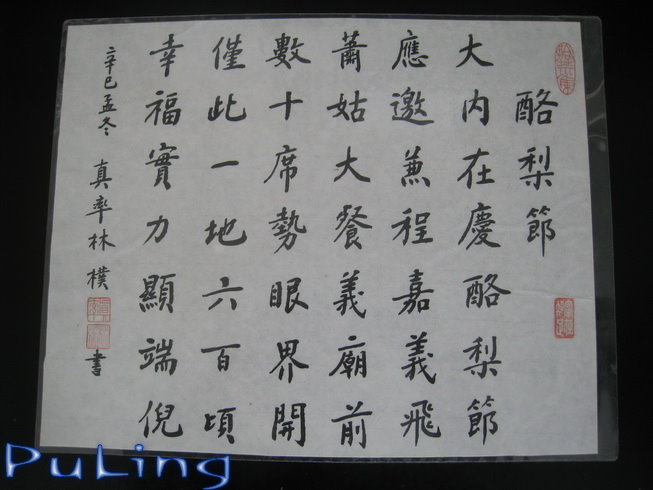 酪梨節
大內在慶酪梨節
應邀兼程嘉義飛
蕭姑大餐義廟前
數十席勢眼界開
僅此一地六百頃
幸福實力顯端倪
辛巳孟冬 真率林樸 書
PuLing